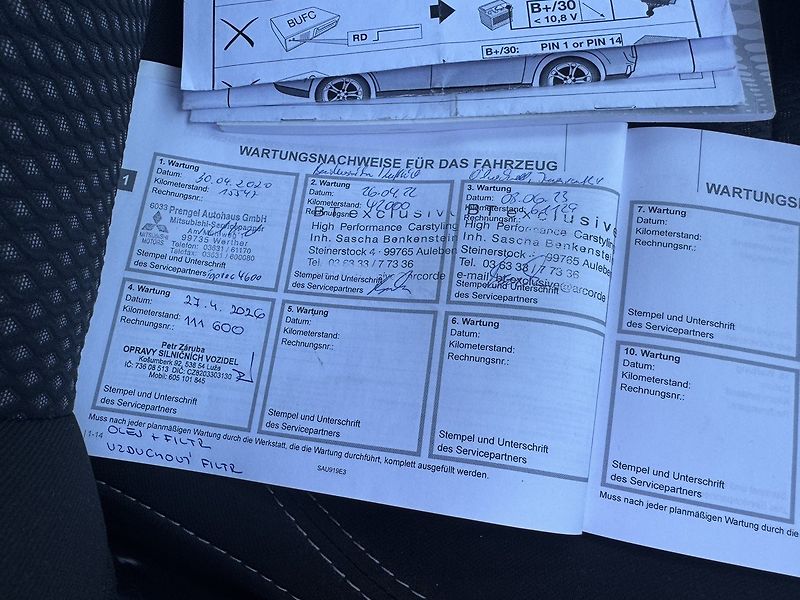 BUFC
RD
B+/30
< 10,8 V
B+/30: PIN 1 or PIN 14
WARTUNGSNACHWEISE FÜR DAS FAHRZEUG
1
1. Wartung
Datum: 30.04.2020
Kilometerstand:
Rechnungsnr.:
6033 Prengel Autohaus GmbH
Mitsubishi-Servicepartner
99735 Werther
Telefon: 03631 /
Telefax: 03631 / 600080
MITSUBISHI
MOTORS
Stempel und Unterschrift
des Servicepartners
2. Wartung
Datum: 26.04.22
Kilometerstand: 42000
Rechnungsnr.:
BF exclusive
High Performance Carstyling
Inh. Sascha Benkenstein
Steinerstock 4 · 99765 Auleben
Tel. 03 63 33 / 7 73 36
Stempel und Unterschrift
des Servicepartners
3. Wartung
Datum:
Kilometerstand:
Rechnungsnr.:
exclusive
High Performance Carstyling
Inh. Sascha Benkenstein
Steinerstock 4 · 99765 Auleben
Tel. 03 63 33 / 7 73 36
Stempel und Unterschrift
des Servicepartners
4. Wartung
Datum: 27.4.2026
Kilometerstand: 111 600
Rechnungsnr.:
Petr Záruba
OPRAVY SILNIČNÍCH VOZIDEL
Košumberk 92, 538 54 Luža
IČ: 736 08 513 DIČ: CZ8203303130
Mobil: 605 101 845
Stempel und Unterschrift
des Servicepartners
5. Wartung
Datum:
Kilometerstand:
Rechnungsnr.:
Stempel und Unterschrift
des Servicepartners
6. Wartung
Datum:
Kilometerstand:
Rechnungsnr.:
Stempel und Unterschrift
des Servicepartners
Muss nach jeder planmäßigen Wartung durch die Werkstatt, die die Wartung durchführt, komplett ausgefüllt werden.
1-14
OLEJ + FILTR
VZDUCHOVÝ FILTR
SAU919E3
WARTUNGS
7. Wartung
Datum:
Kilometerstand:
Rechnungsnr.:
Stempel und Unterschrift
des Servicepartners
10. Wartung
Datum:
Kilometerstand:
Rechnungsnr.:
Stempel und Unterschrift
des Servicepartners
Muss nach jeder planmäßigen Wartung durch die